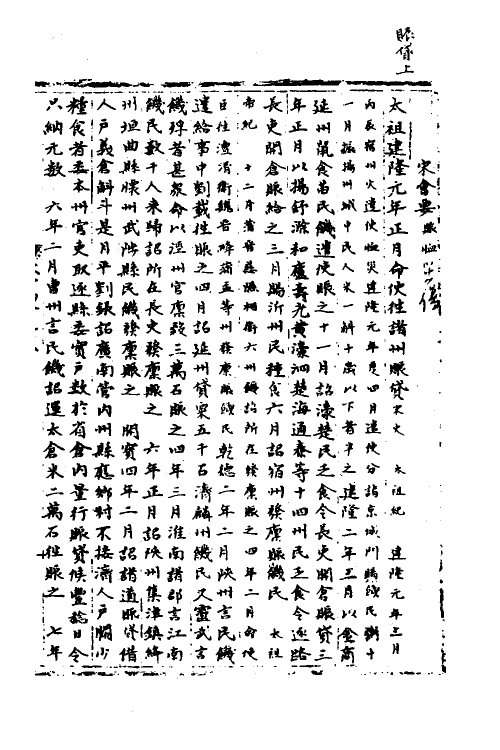 賑貸上
宋會要 賑恤
太祖建隆元年正月命使往諸州賑貸 宋史 太祖紀 建隆元年三月
内辰宿州火遣使恤災建隆元年夏四月遣使分詣京城門賜饑民粥十
一月振揚州城中民人米一斛十歲以下者半之建隆二年三月以金商
延州鼠食苗民饑遣使賑之十一月詔濠楚民乏食令長吏開倉賑貸三
年正月以揚舒滁和廬壽光黃濠泗楚海通泰等十四州民乏食令逐路
長吏開倉賑給之三月賜沂州民種食六月詔宿州發廩賑饑民 太祖
帝紀 十二月蒲晉慈隰相衛六州饑詔所在發廩賑之四年二月命使
臣往澶滑衛魏晉絳蒲孟等州發廩賑饑民乾德二年二月陝州言民饑
遣給事中劉載往賑之四月詔延州貸粟五千石濟麟州饑民又靈武言
饑殍者甚衆命以涇州官廩穀三萬石賑之四年三月淮南諸郡言江南
饑民數千人來歸詔所在長吏發廩賑之 六年正月詔陝州集津鎮絳
州垣曲縣懷州武陟縣民饑發廩賑之 開寶四年二月詔諸道賑貸借
人戶義倉斛斗是月平劉鋹詔廣南管内州縣應鄉村不接濟人戶闕少
糧食者委本州官吏取逐縣委實戶數於省倉内量行賑貸候豐稔日令
只納元數 六年二月曹州言民饑詔運太倉米二萬石往賑之 七年